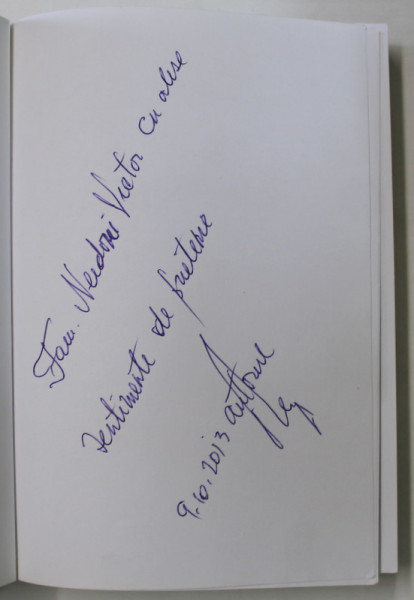 Fam. Neidoni Victor cu alese
sentimente de prietenie
9.10.2013 autorul